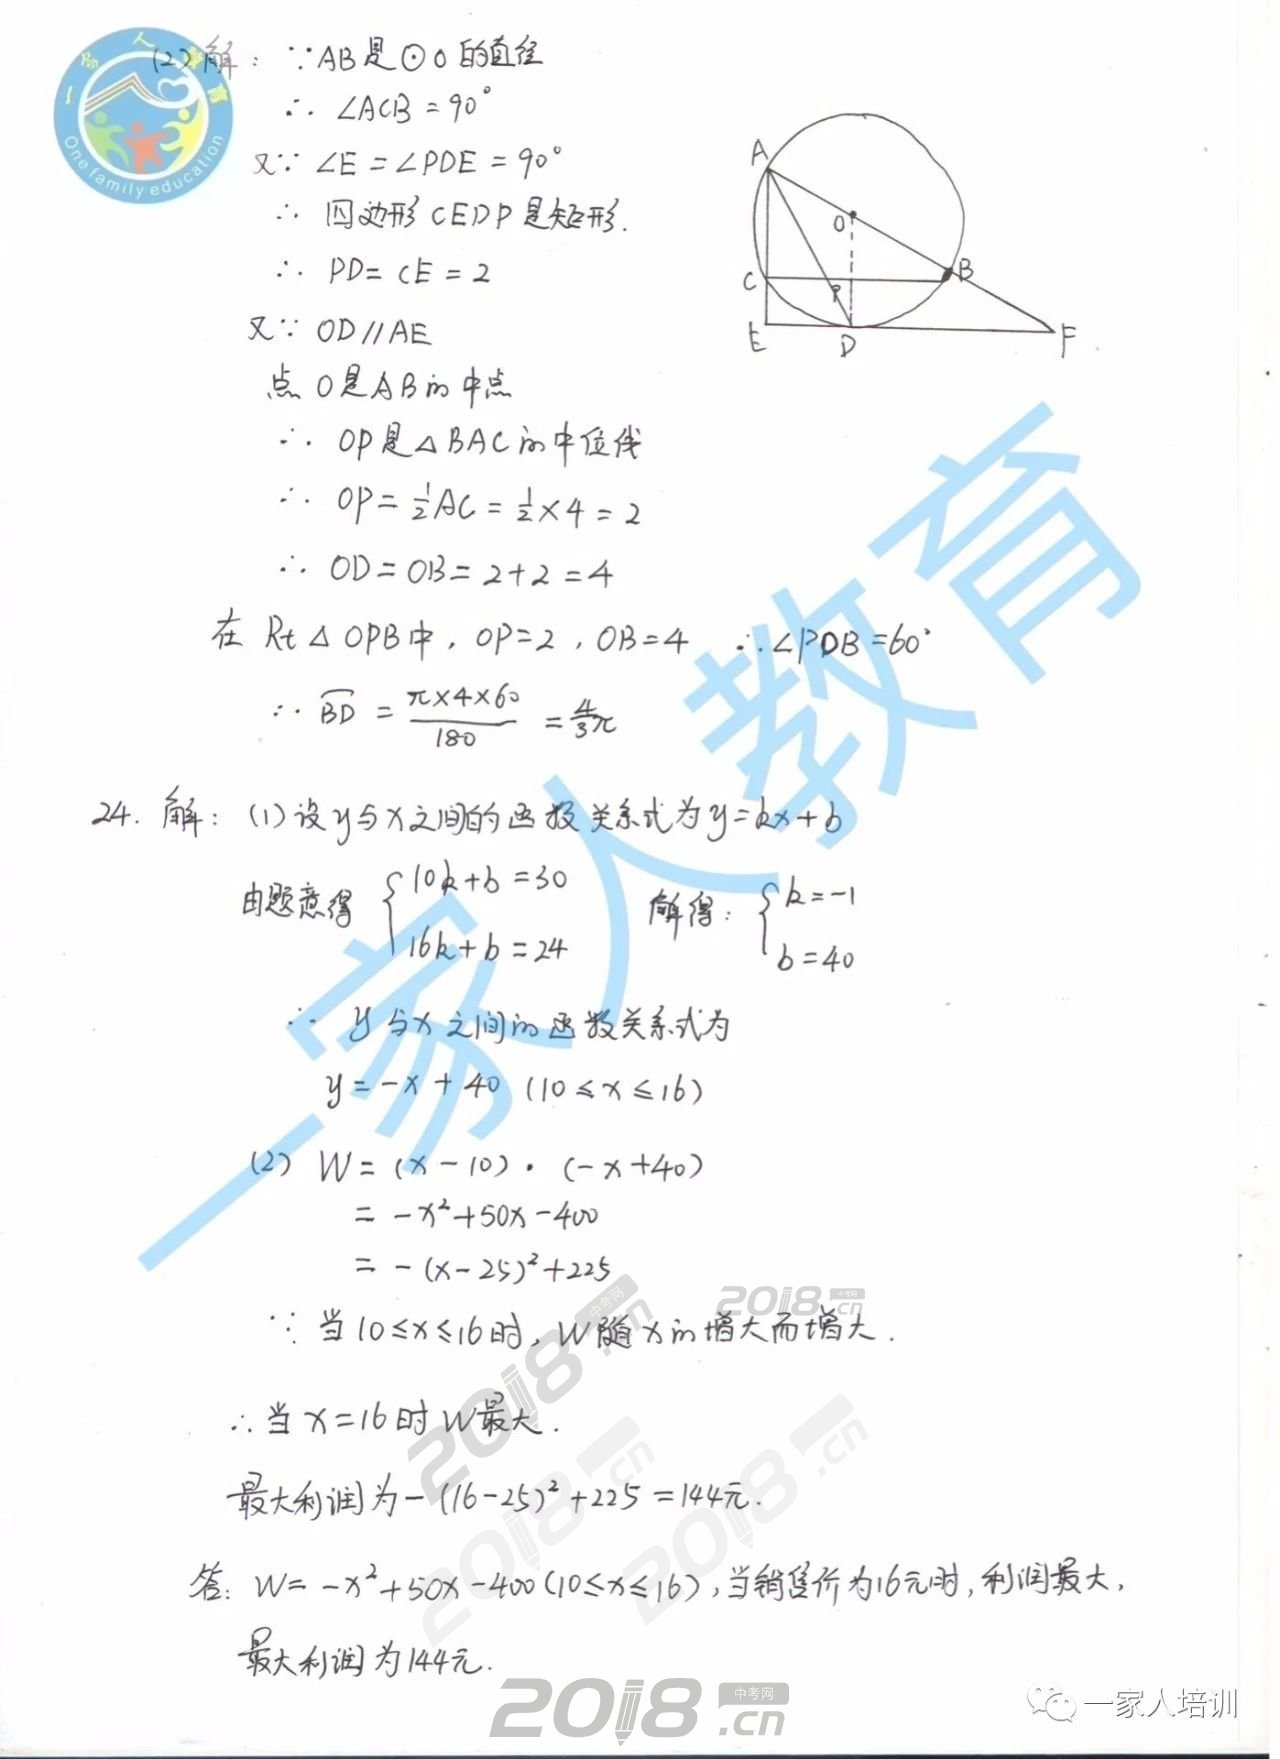 (2) 解: ∵AB是⊙O的直径
∴ ∠ACB=90°
又∵ ∠E=∠PDE=90°
∴ 四边形CEDP是矩形.
∴ PD=CE=2
又∵ OD//AE
点O是AB的中点
∴ OP是△BAC的中位线
∴ OP=½AC=½×4=2
∴ OD=OB=2+2=4
在Rt△OPB中, OP=2, OB=4 ∴∠POB=60°
∴ BD⌒ = π×4×60/180 = 4/3π
A
O
B
C
P
E
D
F
24. 解: (1)设y与x之间的函数关系式为y=kx+b
由题意得 {10k+b=30 解得: {k=-1
16k+b=24 b=40
∴ y与x之间的函数关系式为
y=-x+40 (10≤x≤16)
(2) W=(x-10)·(-x+40)
=-x²+50x-400
=-(x-25)²+225
∵当10≤x≤16时, W随x的增大而增大.
∴当x=16时W最大.
最大利润为-(16-25)²+225=144元.
答: W=-x²+50x-400(10≤x≤16), 当销售价为16元时, 利润最大,
最大利润为144元.
一家人教育
One family education
一家人教育
2018.cn
中考网
2018.cn
中考网
2018.cn
2018.cn
2018.cn
中考网
一家人培训